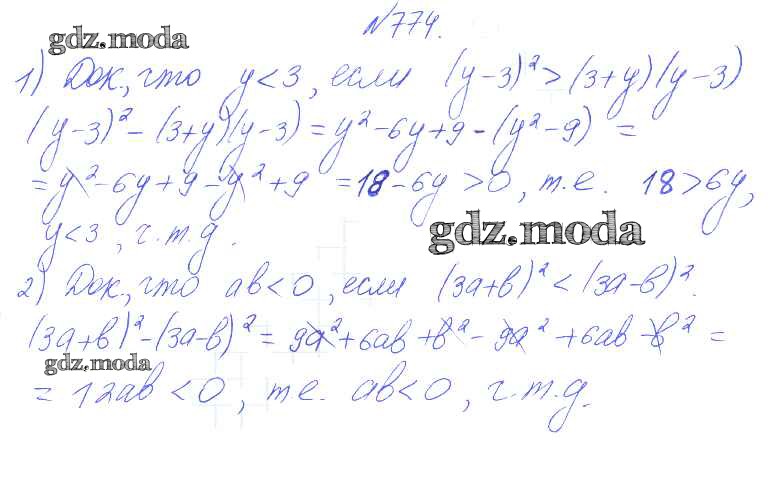 №774.
gdz.moda
1) Док., что y<3, если (y-3)²>(3+y)(y-3)
(y-3)²-(3+y)(y-3)=y²-6y+9-(y²-9) =
=y²-6y+9-y²+9 =18-6y>0, т.е. 18>6y,
y<3, ч.т.д.
gdz.moda
2) Док., что ab<0, если (3a+b)²<(3a-b)².
(3a+b)²-(3a-b)²= 9a²+6ab+b²-9a²+6ab-b² =
gdz.moda
= 12ab<0, т.е. ab<0, ч.т.д.